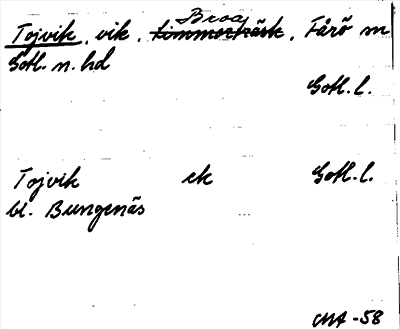 Broa
Tojvik, vik, Fårö sn
Gotl. n. hd
Gotl. l.
Tojvik ek Gotl. l.
bl. Bungenäs
-58